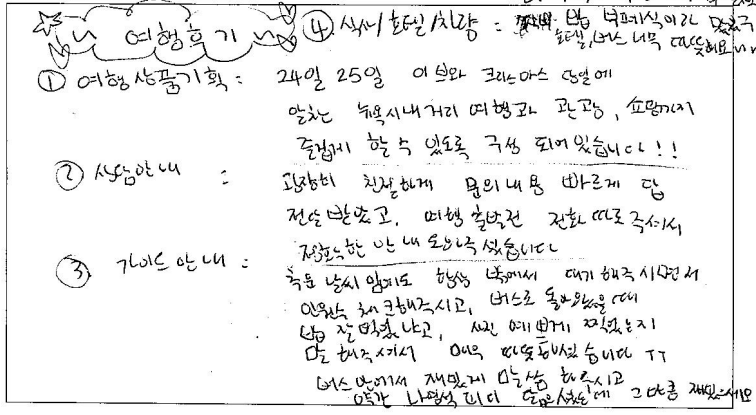 여행후기
④ 식사/호텔/차량 : 밥 뷔페식이라 맛있구
호텔, 버스 너무 따뜻해요ㅠㅠ
① 여행상품기획 : 24일 25일 이브와 크리스마스 당일에
알찬 뉴욕시내거리 여행과 관광, 쇼핑까지
즐겁게 할 수 있도록 구성 되어있습니다!!
② 상담안내 : 굉장히 친절하게 문의내용 빠르게 답
전달 받았고, 여행 출발전 전화 따로 주셔서
정확한 안내 도와주셨습니다
③ 가이드 안내 : 추운 날씨임에도 항상 밖에서 대기해주시면서
인원수 체크해주시고, 버스로 돌아왔을때
밥 잘 먹었냐고, 사진 예쁘게 찍었는지
말 해주셔서 매우 따뜻했습니다 ㅠㅠ
버스안에서 재밌게 말씀 해주시고
약간 나영석 피디 닮으셨는데 그만큼 재밌으세요